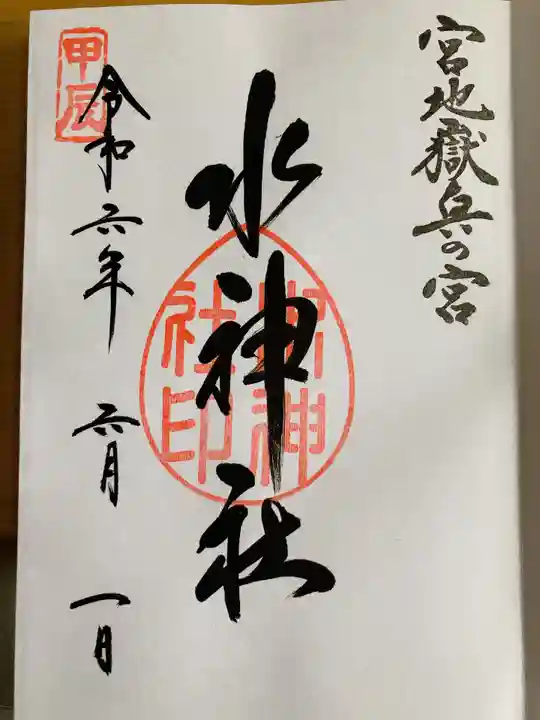 宮地嶽奥の宮
水神社
水神
社印
令和六年 六月 一日
甲辰